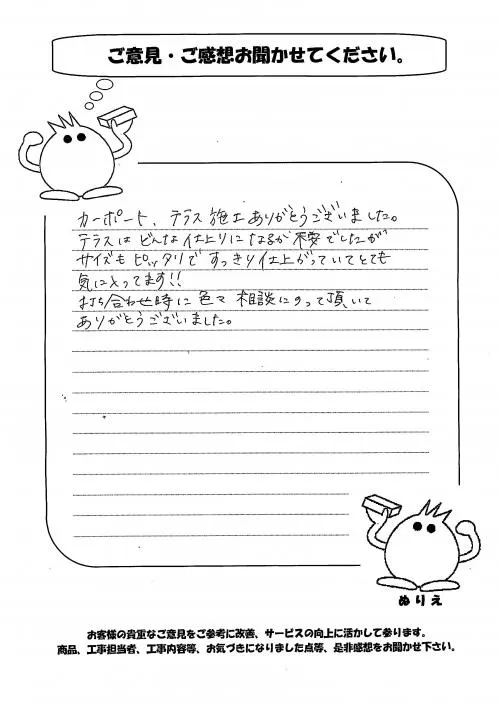 ご意見・ご感想お聞かせてください。
カーポート、テラス施工ありがとうございました。
テラスは どんな仕上りになるか 不安でしたが
サイズも ピッタリで すっきり仕上がっていてとても
気に入ってます!!
打ち合わせ時に 色々 相談にのって頂いて
ありがとうございました。
ぬりえ
お客様の貴重なご意見をご参考に改善、サービスの向上に活かして参ります。
商品、工事担当者、工事内容等、お気づきになりました点等、是非感想をお聞かせ下さい。